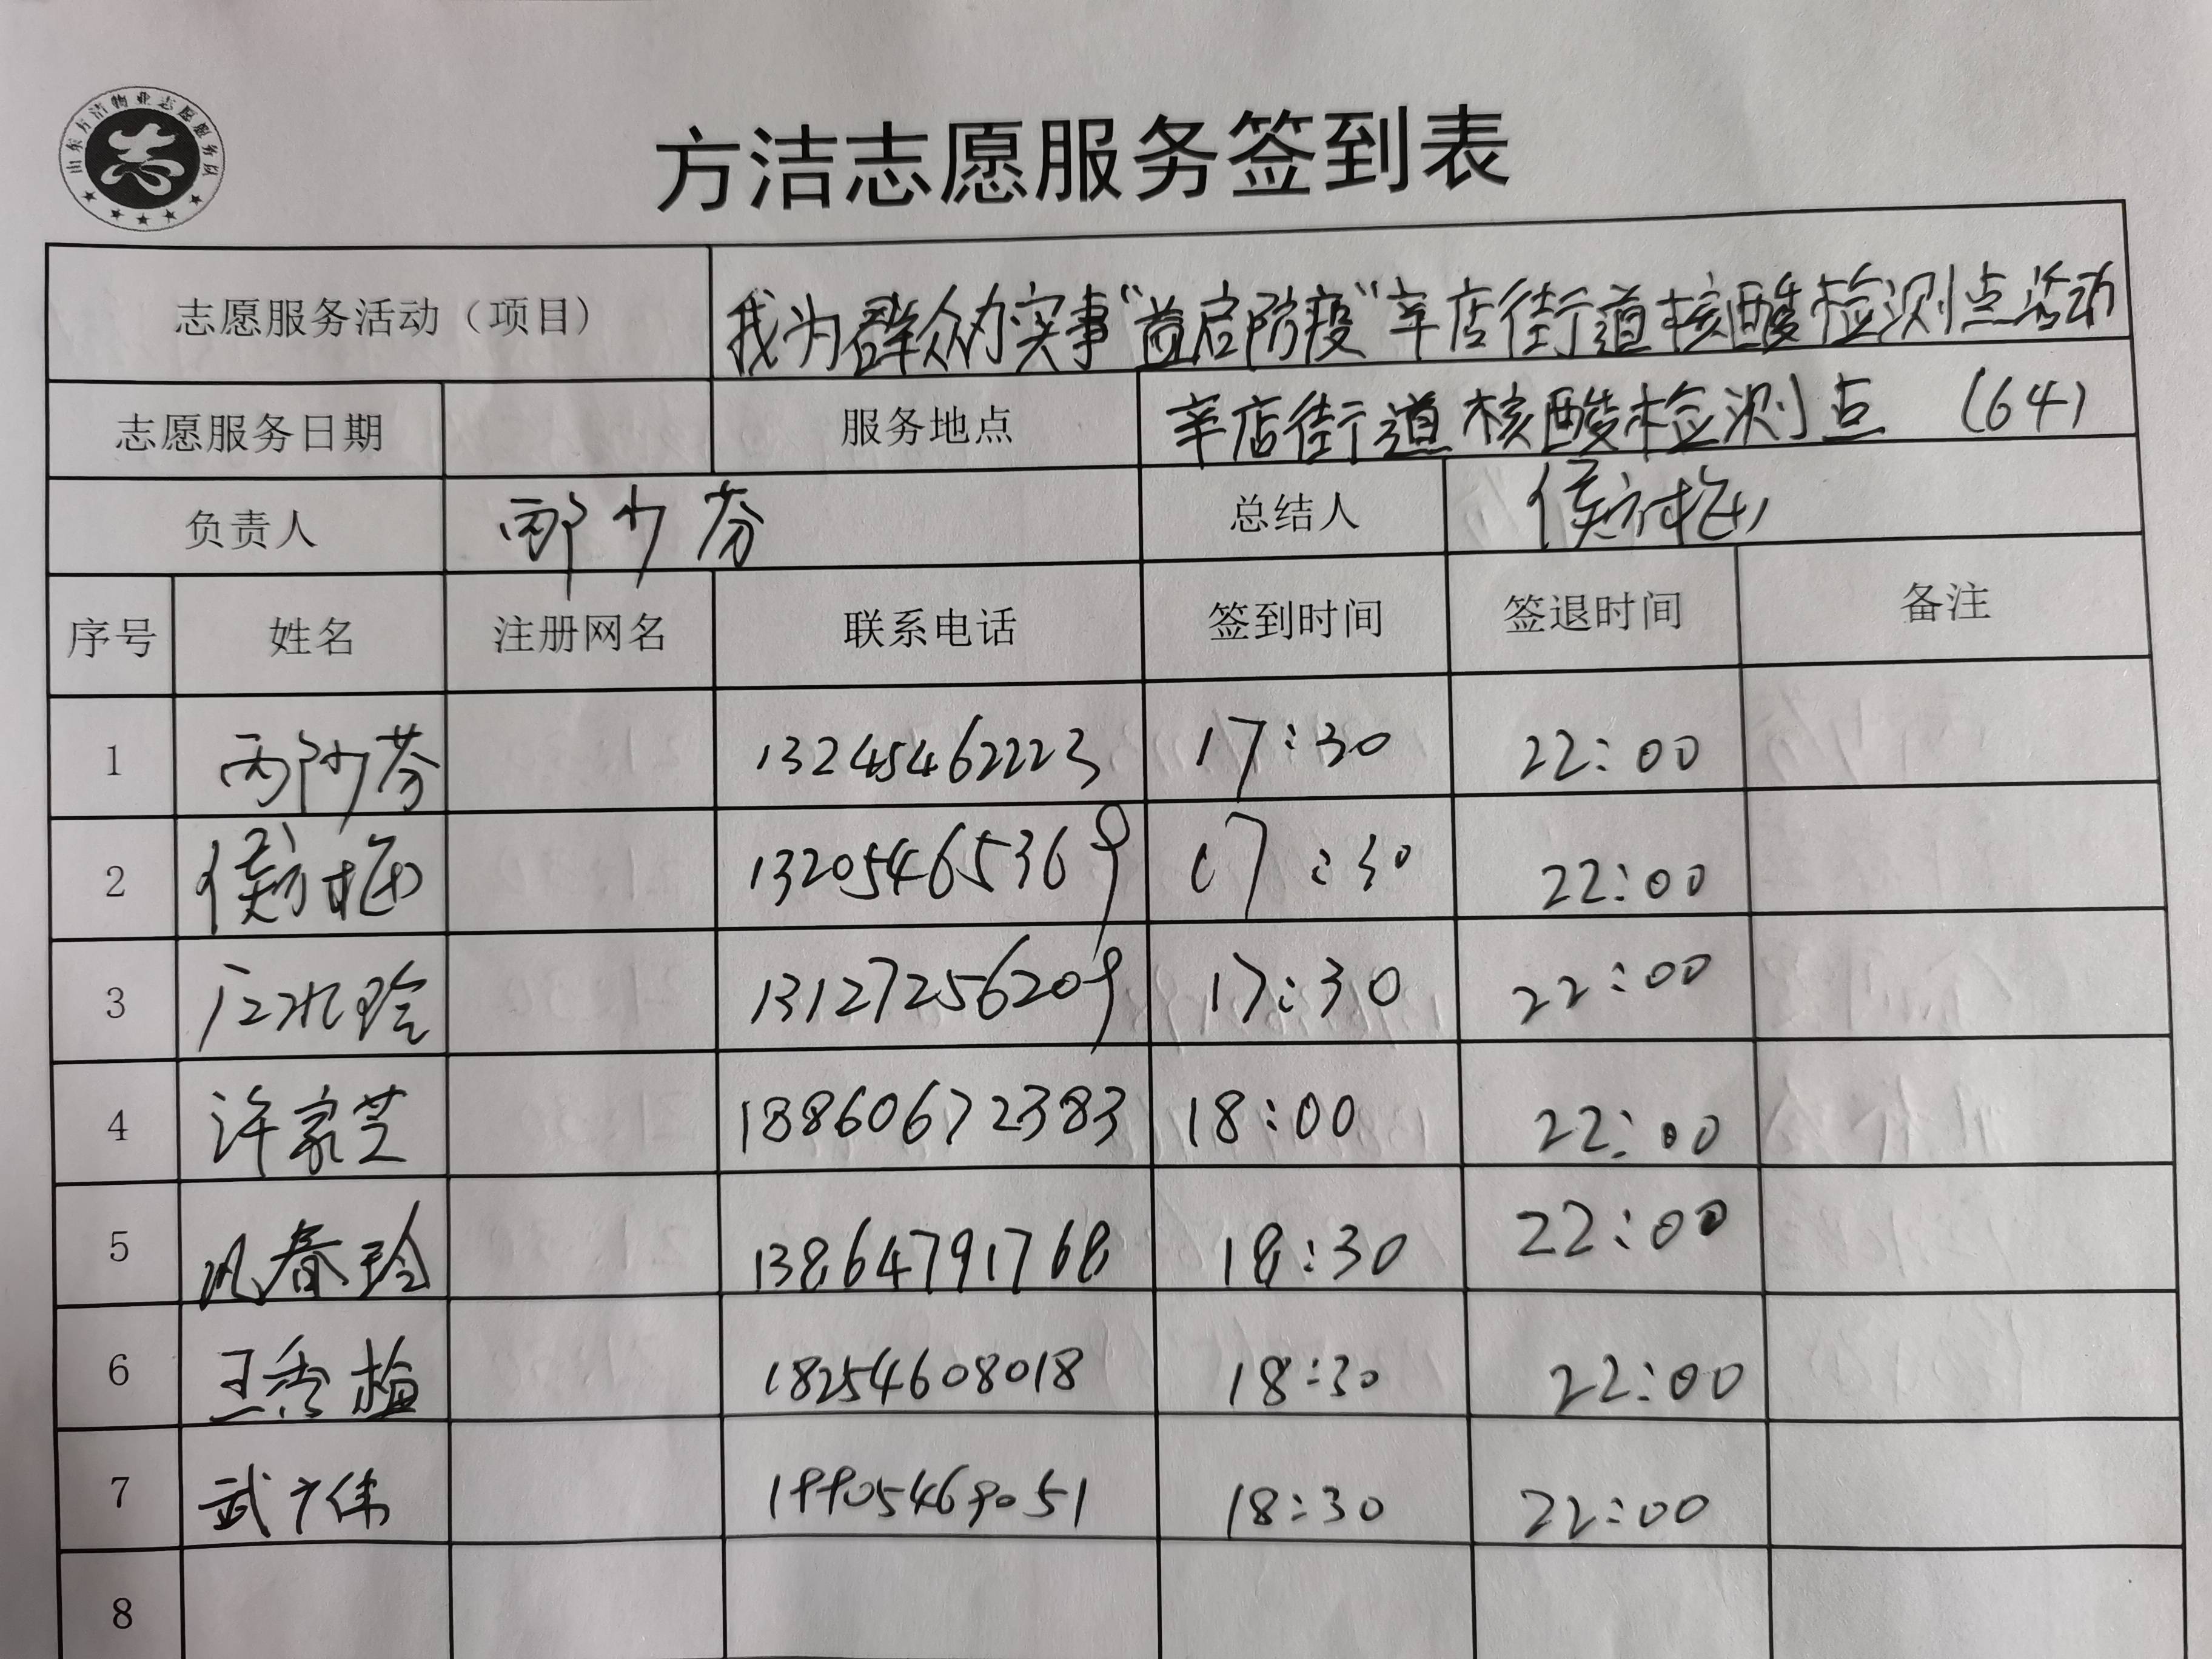 山东方洁物业志愿服务队
方洁志愿服务签到表
志愿服务活动（项目） 我为群众办实事“益启防疫”辛店街道核酸检测点活动
志愿服务日期 服务地点 辛店街道核酸检测点 (64)
负责人 邴少芬 总结人 侯方梅
序号 姓名 注册网名 联系电话 签到时间 签退时间 备注
1 邴少芬 13245462223 17:30 22:00
2 侯方梅 13205465369 17:30 22:00
3 13127256209 17:30 22:00
4 许家芝 18860672383 18:00 22:00
5 春玲 13864791768 18:30 22:00
6 王秀梅 18254608018 18:30 22:00
7 武广伟 19905469051 18:30 22:00
8